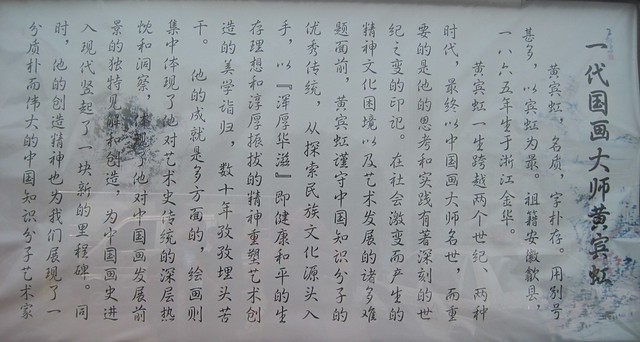 一代国画大师黄宾虹
黄宾虹，名质，字朴存。用别号
甚多，以宾虹为最。祖籍安徽歙县，
一八六五年生于浙江金华。
黄宾虹一生跨越两个世纪、两种
时代，最终以中国画大师名世，而重
要的是他的思考和实践有著深刻的世
纪之变的印记。在社会激变而产生的
精神文化困境以及艺术发展的诸多难
题面前，黄宾虹谨守中国知识分子的
优秀传统，从探索民族文化源头入
手，以『浑厚华滋』即健康和平的生
存理想和淳厚振拔的精神重塑艺术创
造的美学诣归，数十年孜孜埋头苦
干。他的成就是多方面的，绘画则
集中体现了他对艺术史传统的深层热
忱和洞察，体现了他对中国画发展前
景的独特见解和创造，为中国画史进
入现代竖起了一块新的里程碑。同
时，他的创造精神也为我们展现了一
分质朴而伟大的中国知识分子艺术家